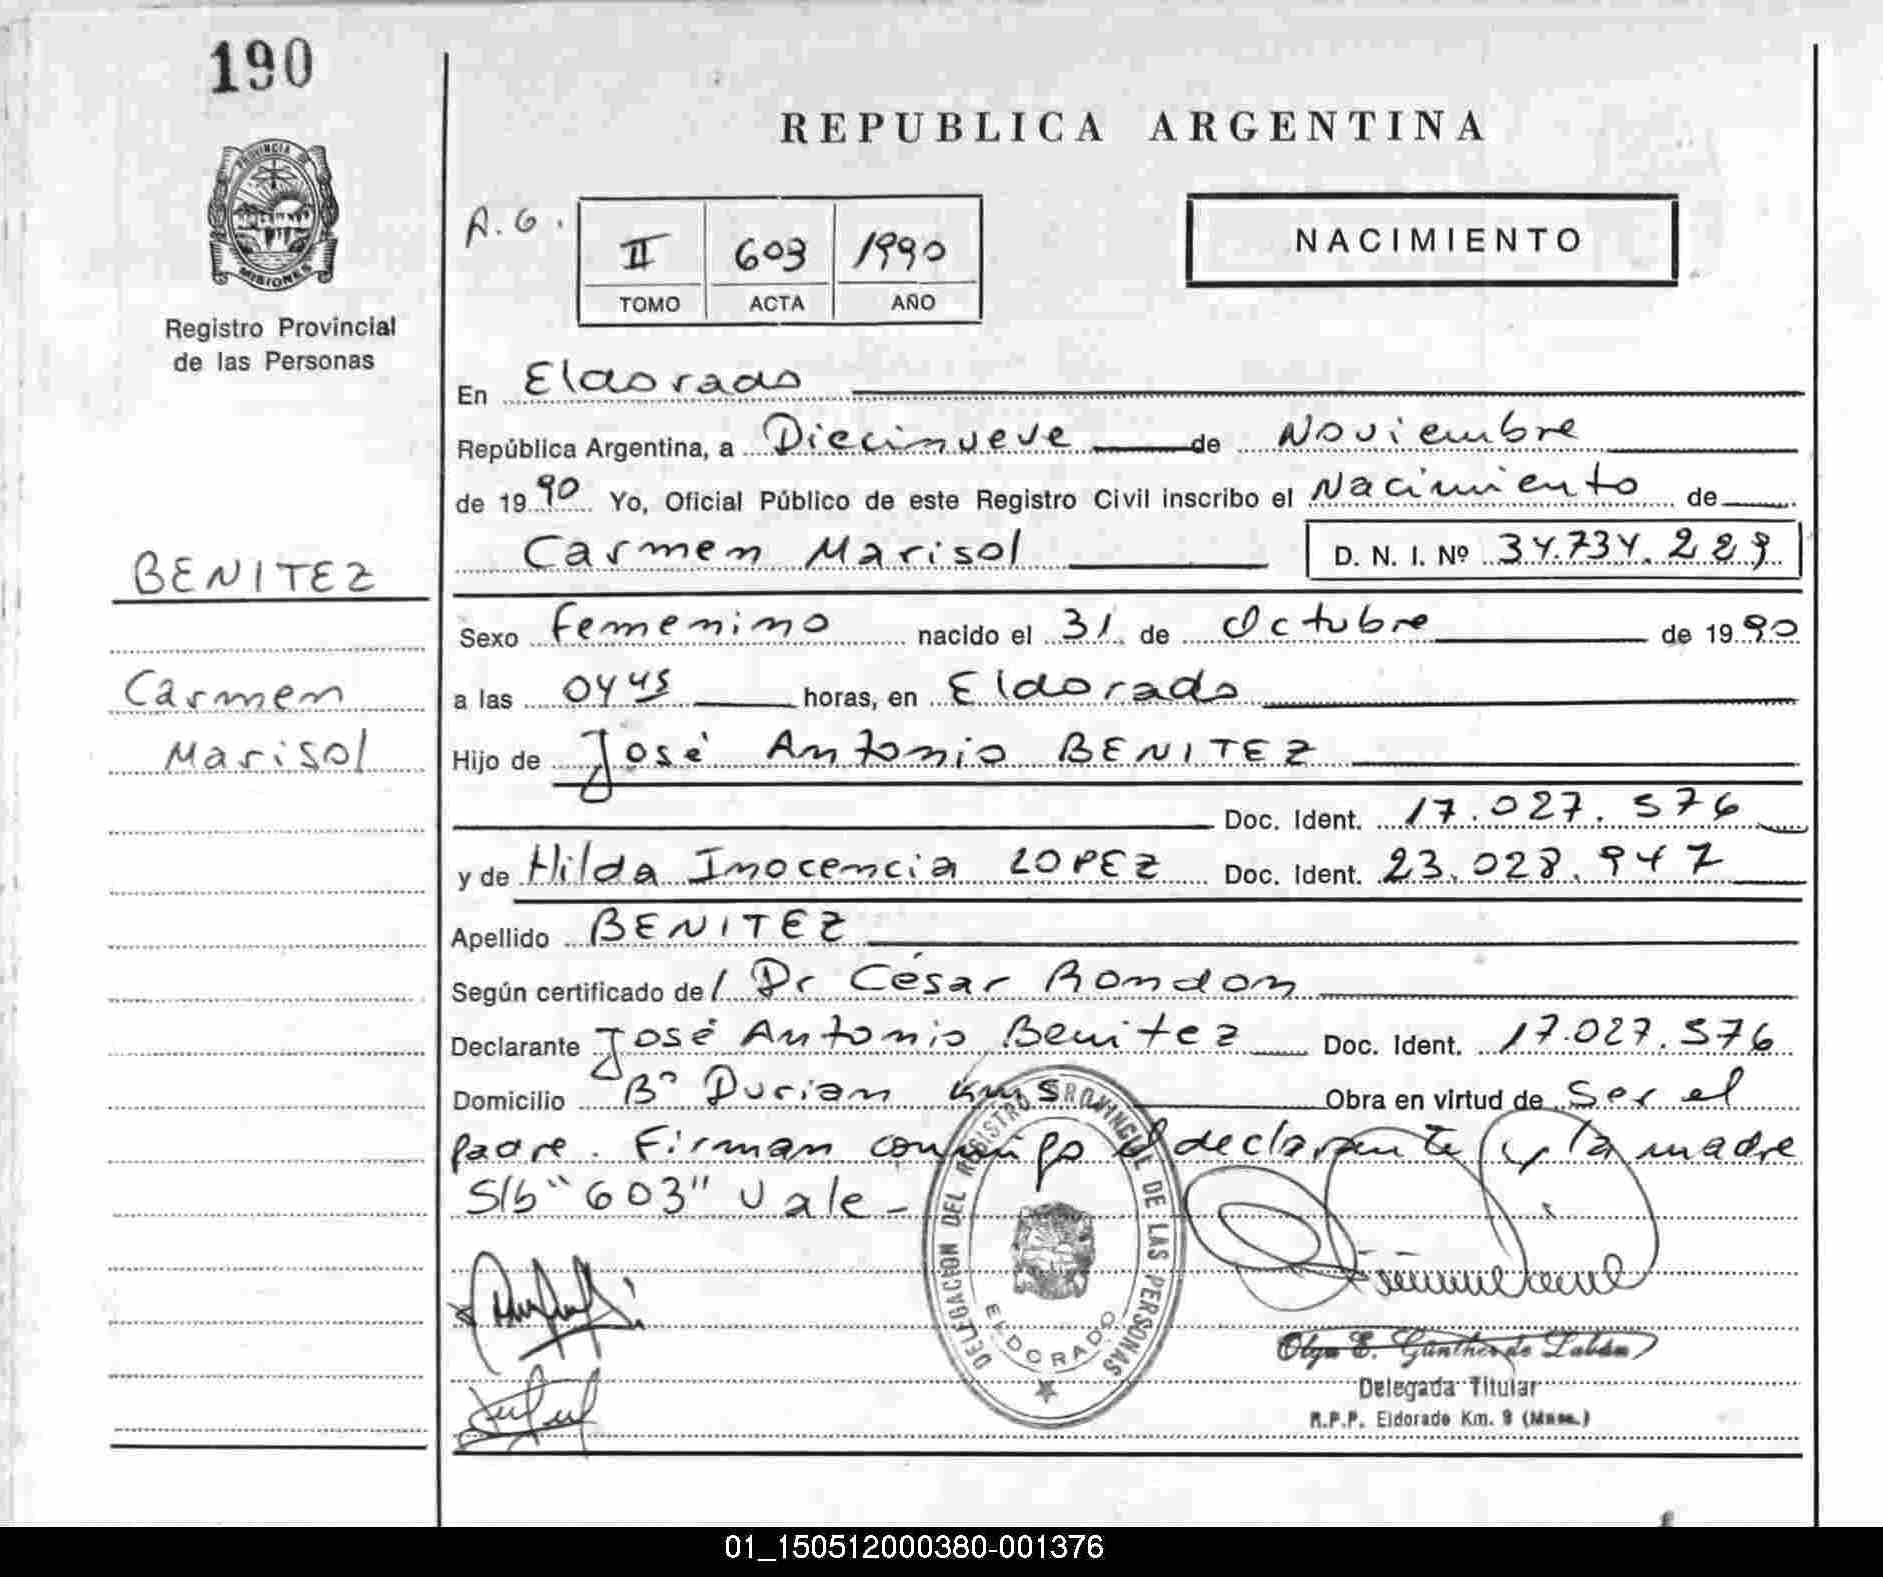 190
PROVINCIA DE
MISIONES
Registro Provincial
de las Personas
BENITEZ
Carmen
Marisol
REPUBLICA ARGENTINA
A.G.
II 603 1990
TOMO ACTA AÑO
NACIMIENTO
En Eldorado
República Argentina, a Diecinueve de Noviembre
de 1990 Yo, Oficial Público de este Registro Civil inscribo el Nacimiento de
Carmen Marisol D. N. I. Nº 34.734.229
Sexo Femenino nacido el 31 de Octubre de 1990
a las 04 45 horas, en Eldorado
Hijo de José Antonio BENITEZ
Doc. Ident. 17.027.576
y de Hilda Inocencia LOPEZ Doc. Ident. 23.028.947
Apellido BENITEZ
Según certificado del Dr César Rondon
Declarante José Antonio Benitez Doc. Ident. 17.027.576
Domicilio Bº Durian Km 5 Obra en virtud de Ser el
padre. Firman conmigo el declarante y la madre
S/b "603" Vale -
DELEGACION DEL REGISTRO PROVINCIAL DE LAS PERSONAS
ELDORADO
Olga E. Günther de Labán
Delegada Titular
R.P.P. Eldorado Km. 9 (Mnes.)
01_150512000380-001376